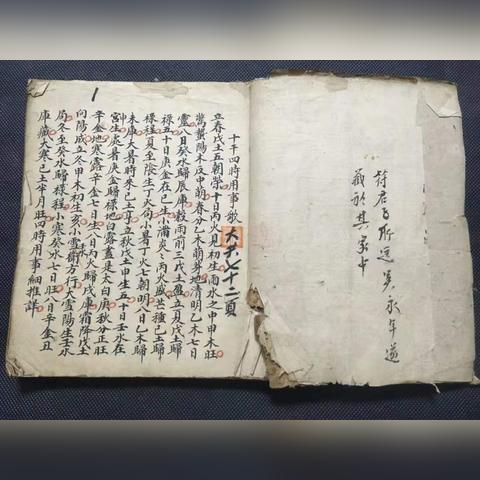 十干四時用事歌
大共七十二頁
立春戊土五朝榮十日丙火見初生雨水之中甲木旺
驚蟄陽木反申萌春分乙木萌芽地清明乙木七日
靈八日癸水歸辰庫穀雨前三戊土盤立夏戊土歸
祿五十日庚金在巳生小滿炎炎丙火盛芒種己土歸
祿程夏至陰生丁火向小暑丁火七朝明八日乙木歸
未庫大暑時來己土享立秋戊己申生五十日壬水在
申宮生處暑庚金歸祿地白露蓋是太白庚秋分正旺
辛金地寒露辛金七日生八日丙火歸戌庫霜降戊土
向陽成立冬甲木初生亥小雪衛方行大雪陽生壬水
局冬至癸水歸祿程小寒癸水七日旺八日辛金丑
庫藏大寒己土十月旺四時用事細推詳
1
符君所送吳永年遂
藏於其家中